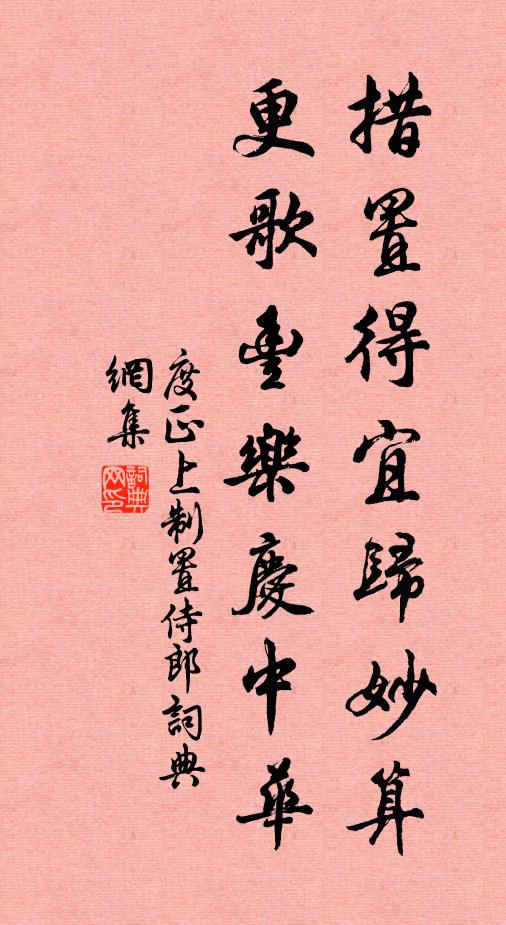 措置得宜歸妙算
更歌豐樂慶中華
度正上制置侍郎詞典
網集
詞典網印